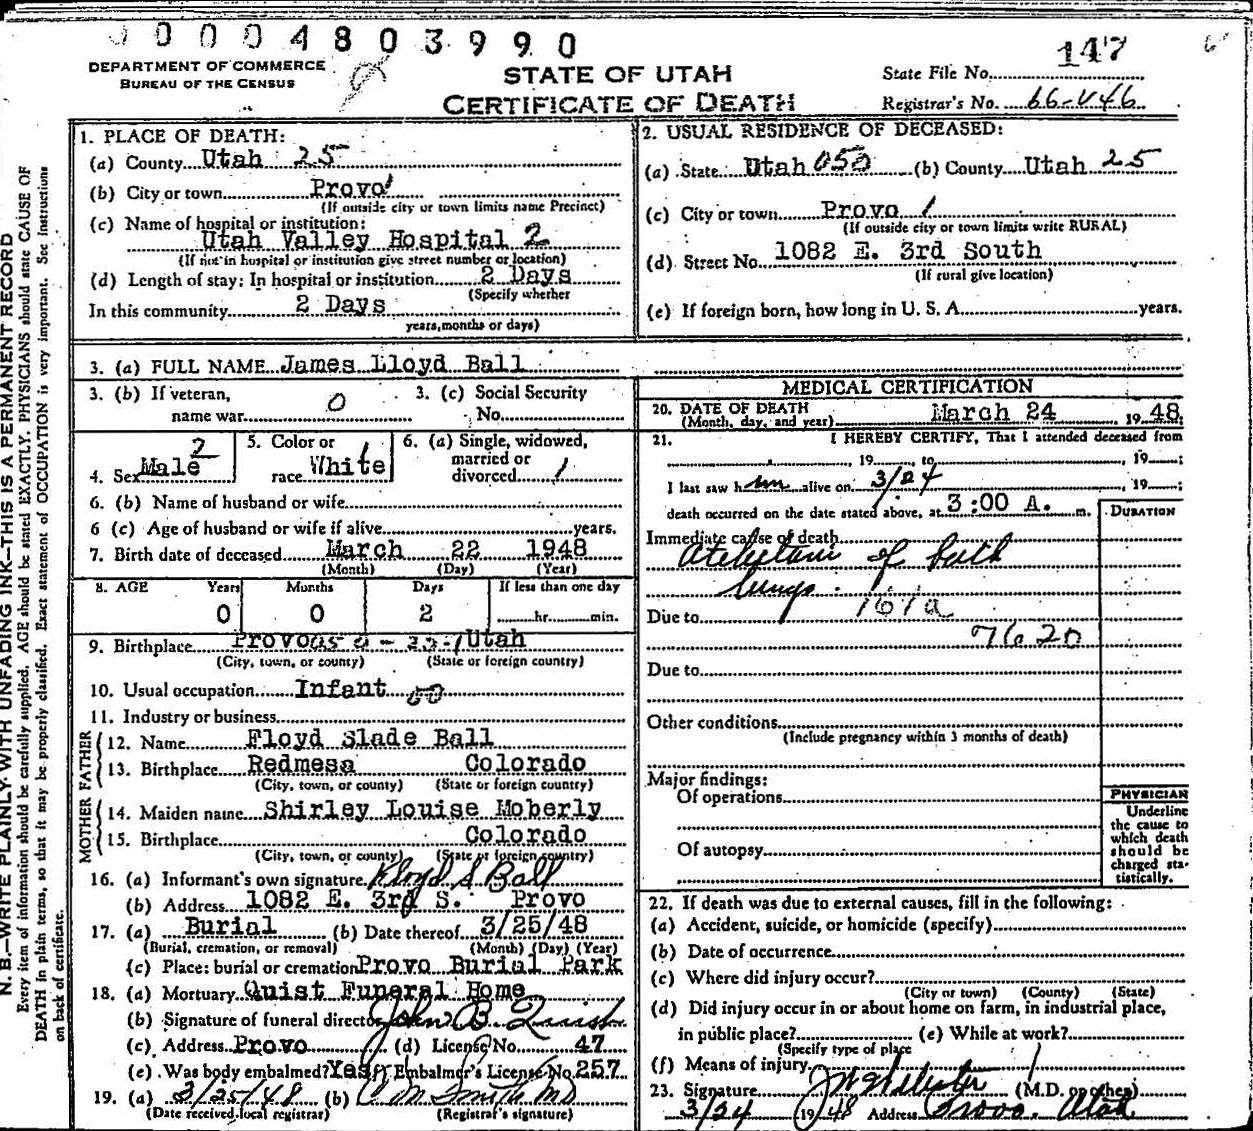 0000480 3990
DEPARTMENT OF COMMERCE
BUREAU OF THE CENSUS
STATE OF UTAH
CERTIFICATE OF DEATH
147
State File No.
Registrar's No. 66-V46
N. B.—WRITE PLAINLY WITH UNFADING INK—THIS IS A PERMANENT RECORD
Every item of information should be carefully supplied. AGE should be stated EXACTLY. PHYSICIANS should state CAUSE OF
DEATH in plain terms, so that it may be properly classified. Exact statement of OCCUPATION is very important. See Instructions
on back of certificate.
1. PLACE OF DEATH:
(a) County Utah 25
(b) City or town Provo
(If outside city or town limits name Precinct)
(c) Name of hospital or institution:
Utah Valley Hospital 2
(If not in hospital or institution give street number or location)
(d) Length of stay: In hospital or institution 2 Days
(Specify whether
In this community 2 Days
years, months or days)
2. USUAL RESIDENCE OF DECEASED:
(a) State Utah 050 (b) County Utah 25
(c) City or town Provo 1
(If outside city or town limits write RURAL)
(d) Street No. 1082 E. 3rd South
(If rural give location)
(e) If foreign born, how long in U. S. A. years.
3. (a) FULL NAME James Lloyd Ball
3. (b) If veteran,
name war 0
3. (c) Social Security
No.
4. Sex Male 2
5. Color or
race White 1
6. (a) Single, widowed,
married or
divorced 1
6. (b) Name of husband or wife
6 (c) Age of husband or wife if alive years.
7. Birth date of deceased March 22 1948
(Month) (Day) (Year)
8. AGE Years Months Days If less than one day
0 0 2 hr. min.
9. Birthplace Provo Utah
(City, town, or county) (State or foreign country)
10. Usual occupation Infant
11. Industry or business
FATHER
12. Name Floyd Slade Ball
13. Birthplace Redmesa Colorado
(City, town, or county) (State or foreign country)
MOTHER
14. Maiden name Shirley Louise Moberly
15. Birthplace Colorado
(City, town, or county) (State or foreign country)
16. (a) Informant's own signature Floyd S Ball
(b) Address 1082 E. 3rd S. Provo
17. (a) Burial (b) Date thereof 3/25/48
(Burial, cremation, or removal) (Month) (Day) (Year)
(c) Place: burial or cremation Provo Burial Park
18. (a) Mortuary Quist Funeral Home
(b) Signature of funeral director John B Quist
(c) Address Provo (d) License No. 47
(e) Was body embalmed? Yes Embalmer's License No. 257
19. (a) 3/25/48 (b) C M Smith MD
(Date received local registrar) (Registrar's signature)
MEDICAL CERTIFICATION
20. DATE OF DEATH
(Month, day, and year) March 24 1948
21. I HEREBY CERTIFY, That I attended deceased from
, 19 , to , 19 ;
I last saw him alive on 3/24 , 19 ;
death occurred on the date stated above, at 3:00 A. m.
DURATION
Immediate cause of death
Atelectasis of both
lungs.
161a
Due to
7620
Due to
Other conditions
(Include pregnancy within 3 months of death)
Major findings:
Of operations
Of autopsy
PHYSICIAN
Underline
the cause to
which death
should be
charged sta-
tistically.
22. If death was due to external causes, fill in the following:
(a) Accident, suicide, or homicide (specify)
(b) Date of occurrence
(c) Where did injury occur?
(City or town) (County) (State)
(d) Did injury occur in or about home on farm, in industrial place,
in public place? (e) While at work?
(Specify type of place
(f) Means of injury
23. Signature (M.D. or other)
3/24 1948 Address Provo, Utah